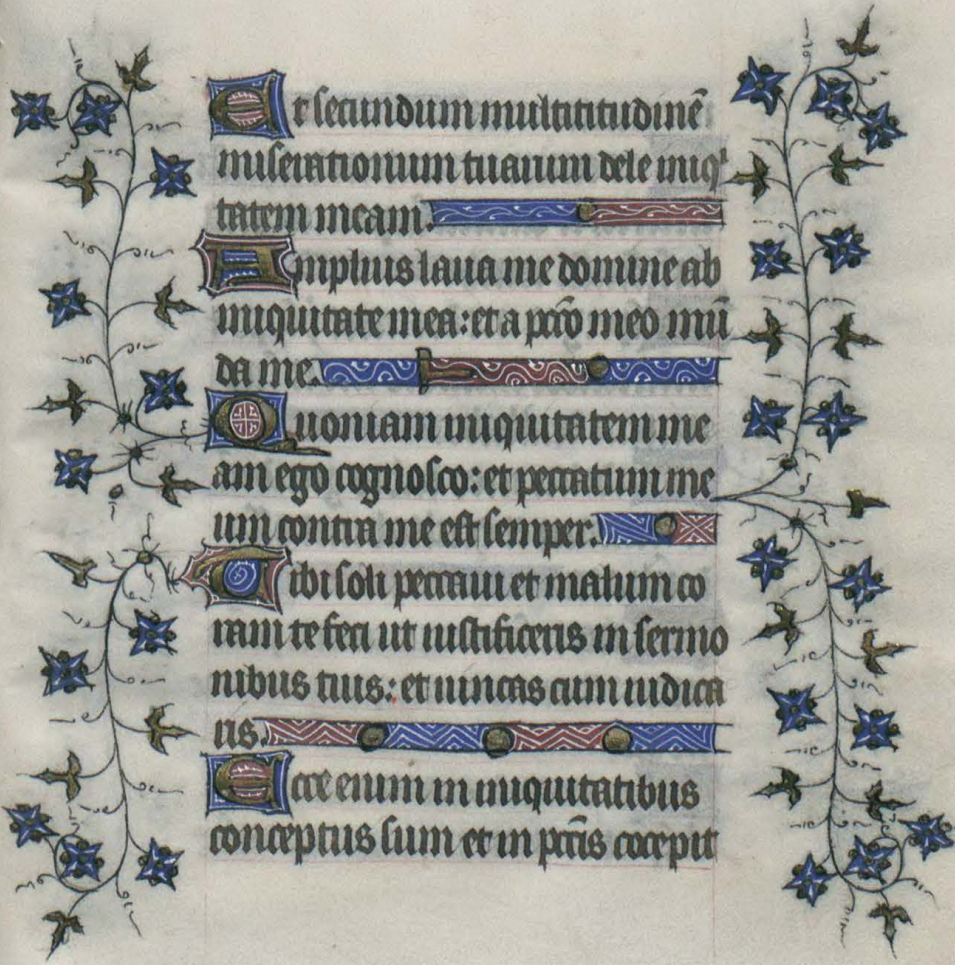 Et secundum multitudinē
miserationum tuarum dele iniqⁱ
tatem meam.
Amplius laua me domine ab
iniquitate mea: et a pctō meo mū
da me.
Quoniam iniquitatem me
am ego cognosco: et peccatum me
um contra me est semper.
Tibi soli peccaui et malum co
ram te feci ut iustificeris in sermo
nibus tuis: et uincas cum iudica
ris.
Ecce enim in iniquitatibus
conceptus sum et in pctīs cōcepit